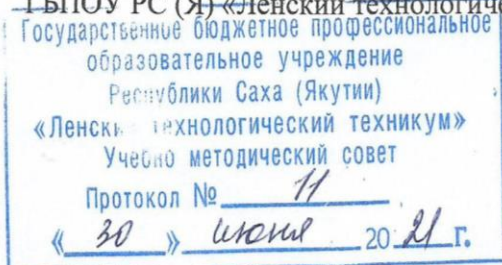 ГБПОУ РС (Я) «Ленский технологиче
Государственное бюджетное профессиональное
образовательное учреждение
Республики Саха (Якутии)
«Ленский технологический техникум»
Учебно методический совет
Протокол № 11
« 30 » июня 20 21 г.